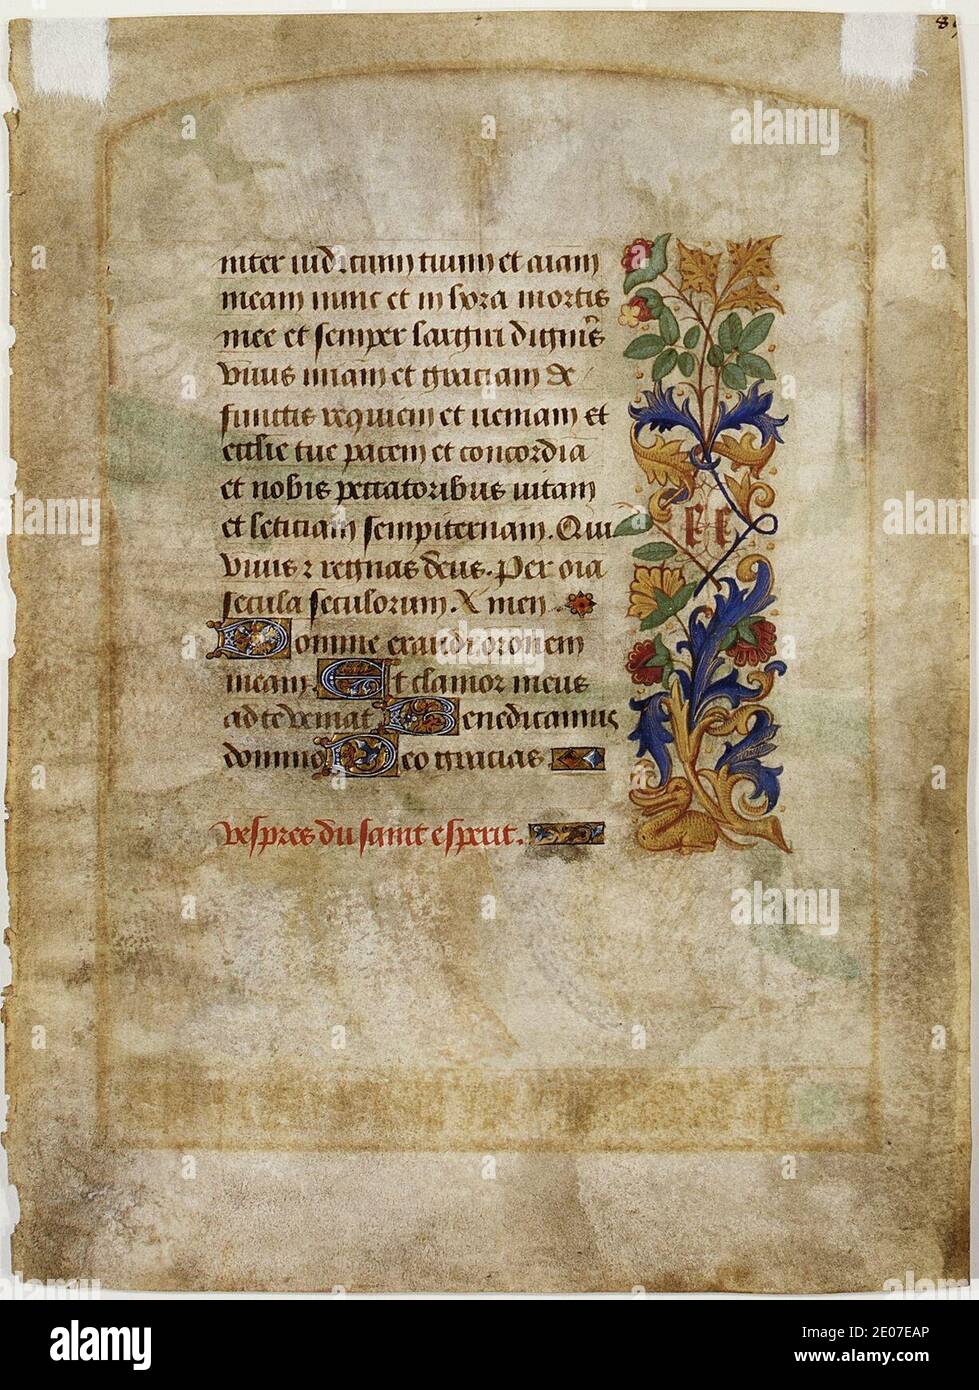 89
inter iudicium tuum et aiam
meam nunc et in hora mortis
mee et semper largiri digneris
viuis miam et graciam de
functis requiem et ueniam et
ecclsie tue pacem et concordia
et nobis peccatoribus uitam
et leticiam sempiternam. Qui
viuis ⁊ regnas deus. Per oia
secula seculorum. Amen
Domine exaudi oronem
meam. Et clamor meus
ad te veniat. Benedicamus
domino Deo gracias.
vespres du saint esperit.
alamy
alamy
Image ID: 2E07EAP
www.alamy.com